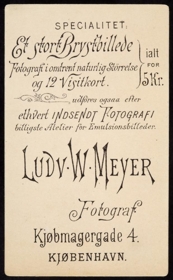 SPECIALITET:
Et stort Brystbillede
Fotografi i omtrent naturlig Størrelse
og 12 Visitkort.
ialt
FOR
5 Kr.
udføres ogsaa efter
ethvert INDSENDT FOTOGRAFI
billigste Atelier for Emulsionsbilleder.
LUDV. W. MEYER
Fotograf
Kjøbmagergade 4.
KJØBENHAVN.